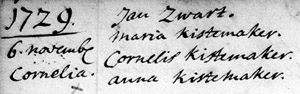 1729.
Jan Zwart.
maria kistemaker.
6. novemb
Cornelis kistemaker.
Cornelia.
anna kistemaker.